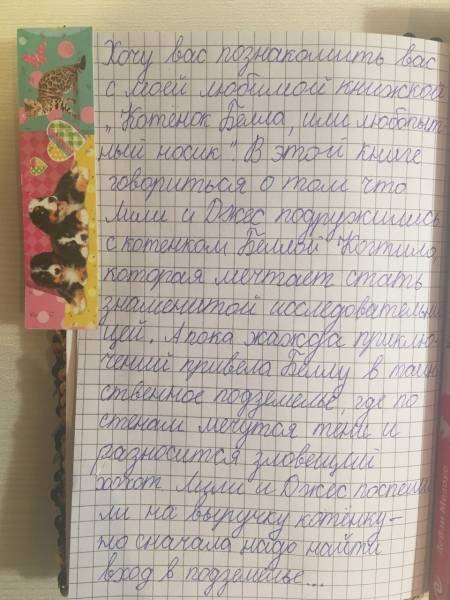 Хочу вас познакомить вас
с моей любимой книжкой
„Котёнок Белла, или любопыт-
ный носик". В этой книге
говориться о том что
Лили и Джес подружились
с котенком Беллой Когтило,
которая мечтает стать
знаменитой исследовательни
цей. А пока жажда приклю-
чений привела Беллу в таин
ственное подземелье, где по
стенам мечутся тени и
разносится зловещий
хохот Лили и Джес поспеши
ли на выручку котёнку-
но сначала надо найти
вход в подземелье...